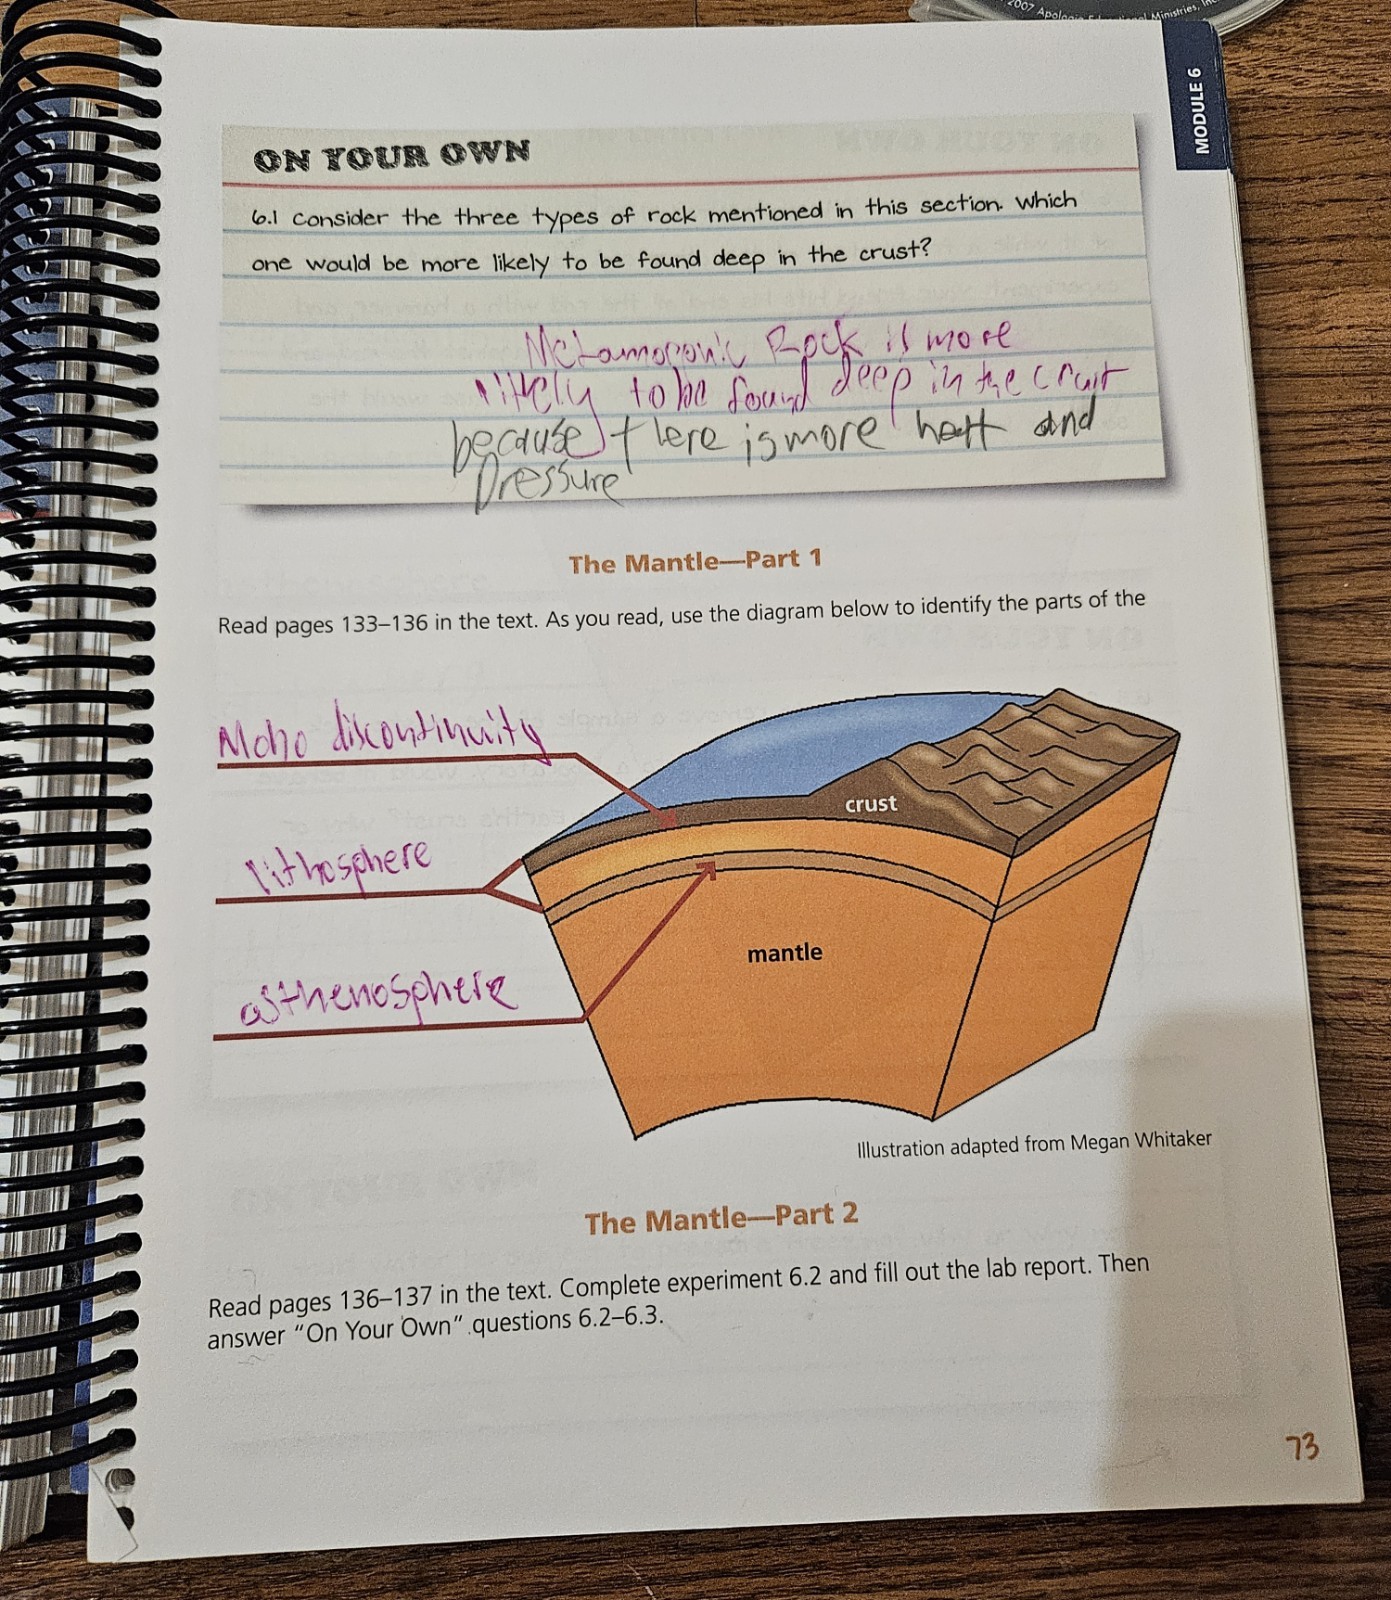 2007 Apologia Educational Ministries, Inc
MODULE 6
ON YOUR OWN
6.1 Consider the three types of rock mentioned in this section. Which
one would be more likely to be found deep in the crust?
Rock is more
to be found deep in the crust
because there is more heat and
pressure
The Mantle—Part 1
Read pages 133–136 in the text. As you read, use the diagram below to identify the parts of the
Moho discontinuity
crust
lithosphere
mantle
asthenosphere
Illustration adapted from Megan Whitaker
The Mantle—Part 2
Read pages 136–137 in the text. Complete experiment 6.2 and fill out the lab report. Then
answer “On Your Own” questions 6.2–6.3.
73